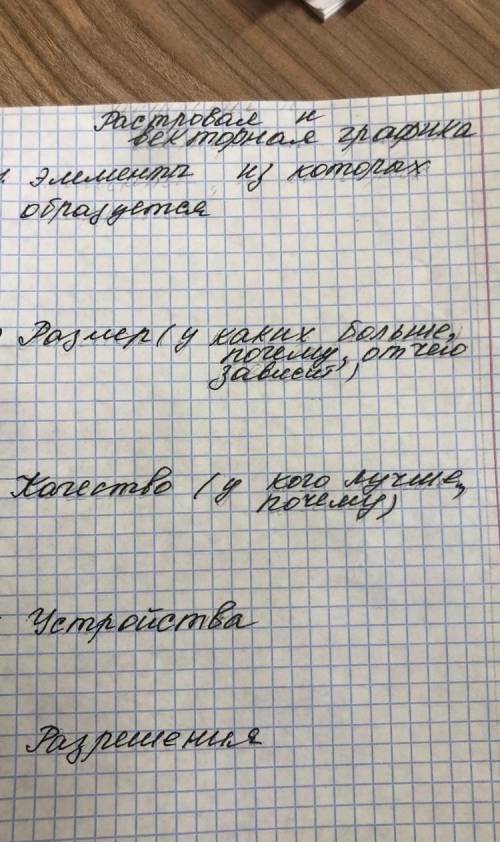 Растровая и
векторная графика
1. элементы из которах
образуется
Размер (у каких больше,
почему, от чего
зависит)
Качество (у кого лучше,
почему)
Устройства
Разрешения